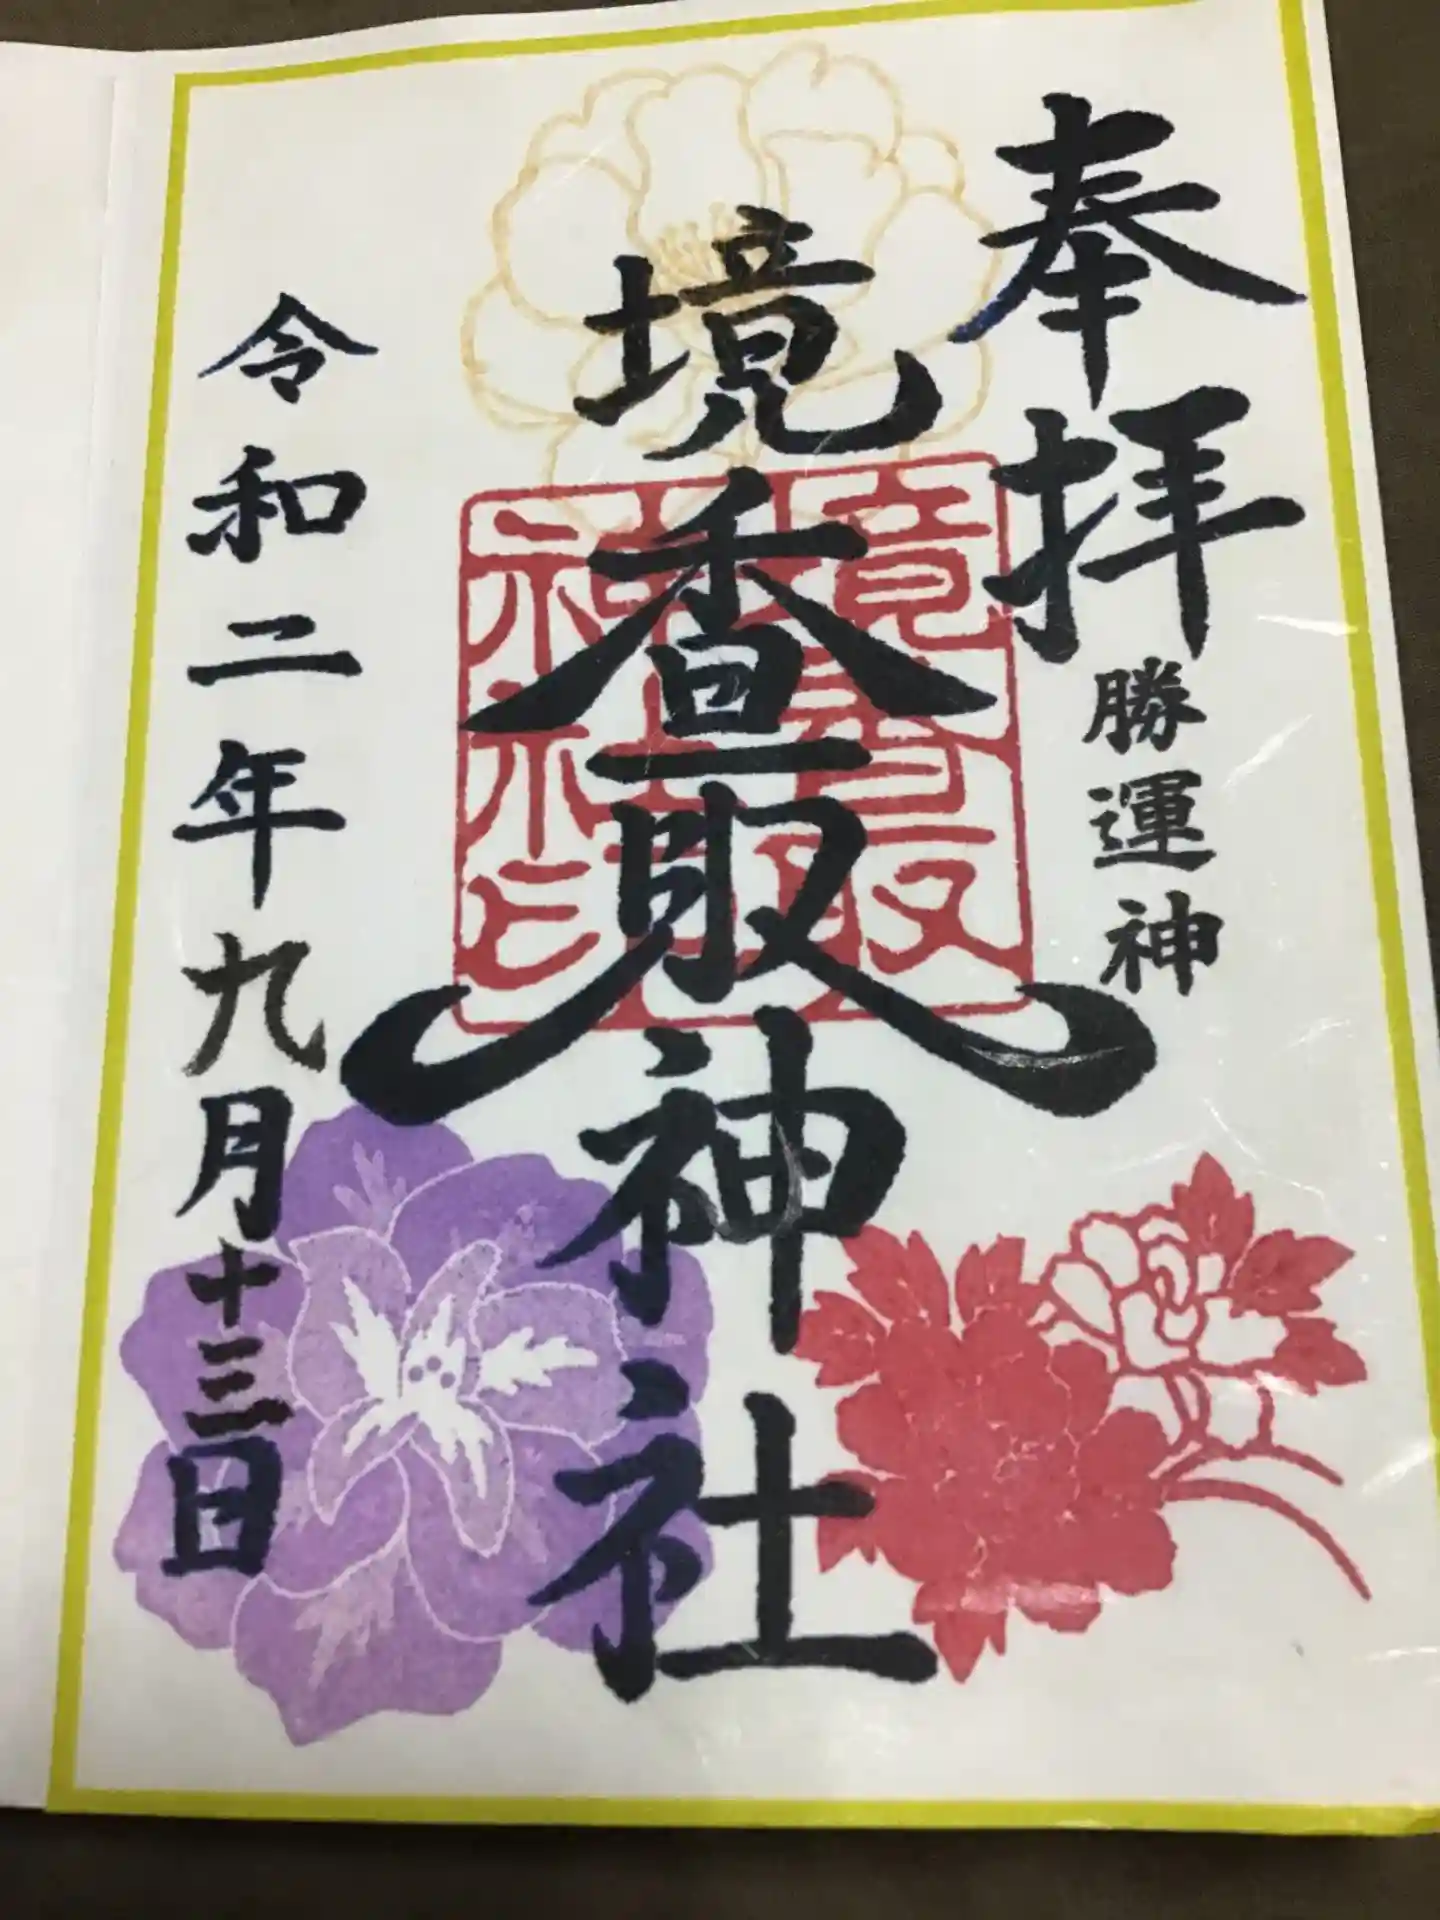 奉拝
勝運神
境香取神社
境香取
神社
神社印
令和二年九月十三日